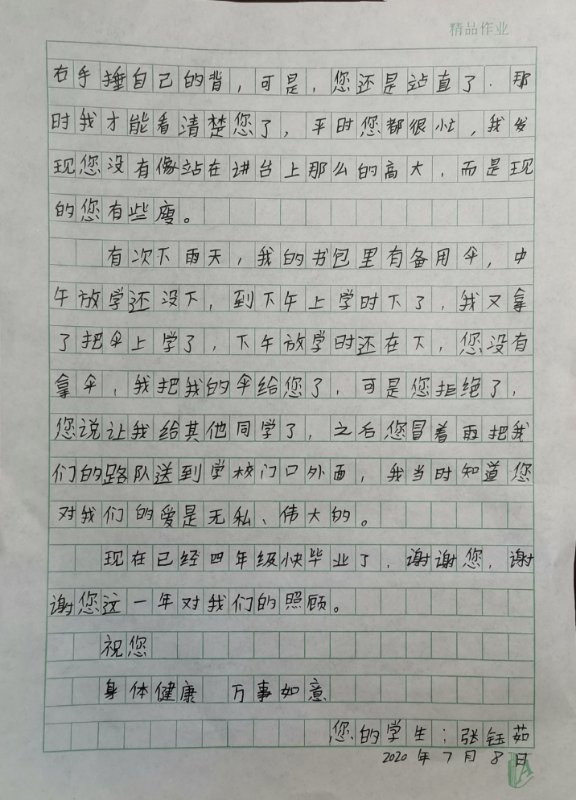 精品作业
右手捶自己的背，可是，您还是站直了．那
时我才能看清楚您了，平时您都很忙，我发
现您没有像站在讲台上那么的高大，而是现
的您有些瘦。
有次下雨天，我的书包里有备用伞，中
午放学还没下，到下午上学时下了，我又拿
了把伞上学了，下午放学时还在下，您没有
拿伞，我把我的伞给您了，可是您拒绝了，
您说让我给其他同学了，之后您冒着雨把我
们的路队送到学校门口外面，我当时知道您
对我们的爱是无私、伟大的。
现在已经四年级快毕业了，谢谢您，谢
谢您这一年对我们的照顾。
祝您
身体健康 万事如意
您的学生：张钰茹
2020年7月8日